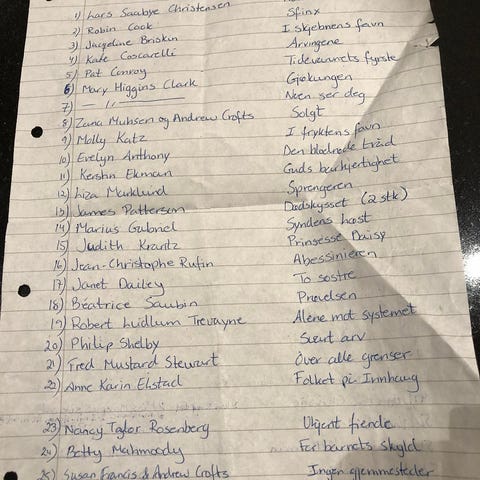 1) Lars Saabye Christensen
2) Robin Cook Sfinx
3) Jacqeline Briskin I skjebnens favn
4) Kate Coscarelli Arvingene
5) Pat Conroy Tidevannets fyrste
6) Mary Higgins Clark Gjøkungen
7) — 11 — Noen ser deg
8) Zana Muhsen og Andrew Crofts Solgt
9) Molly Katz I fryktens favn
10) Evelyn Anthony Den blodrøde tråd
11) Kerstin Ekman Guds barhjertighet
12) Liza Marklund Sprengeren
13) James Patterson Dødskysset (2 stk)
14) Marius Gabriel Syndens høst
15) Judith Krantz Prinsesse Daisy
16) Jean-Christophe Rufin Abessinieren
17) Janet Dailey To søstre
18) Béatrice Saubin Prøvelsen
19) Robert Ludlum Trevayne Alene mot systemet
20) Philip Shelby Svart arv
21) Fred Mustard Stewart Over alle grenser
22) Anne Karin Elstad Folket på Innhaug
23) Nancy Taylor Rosenberg Ukjent fiende
24) Betty Mahmoody For barnets skyld
25) Susan Francis & Andrew Crofts Ingen gjemmesteder